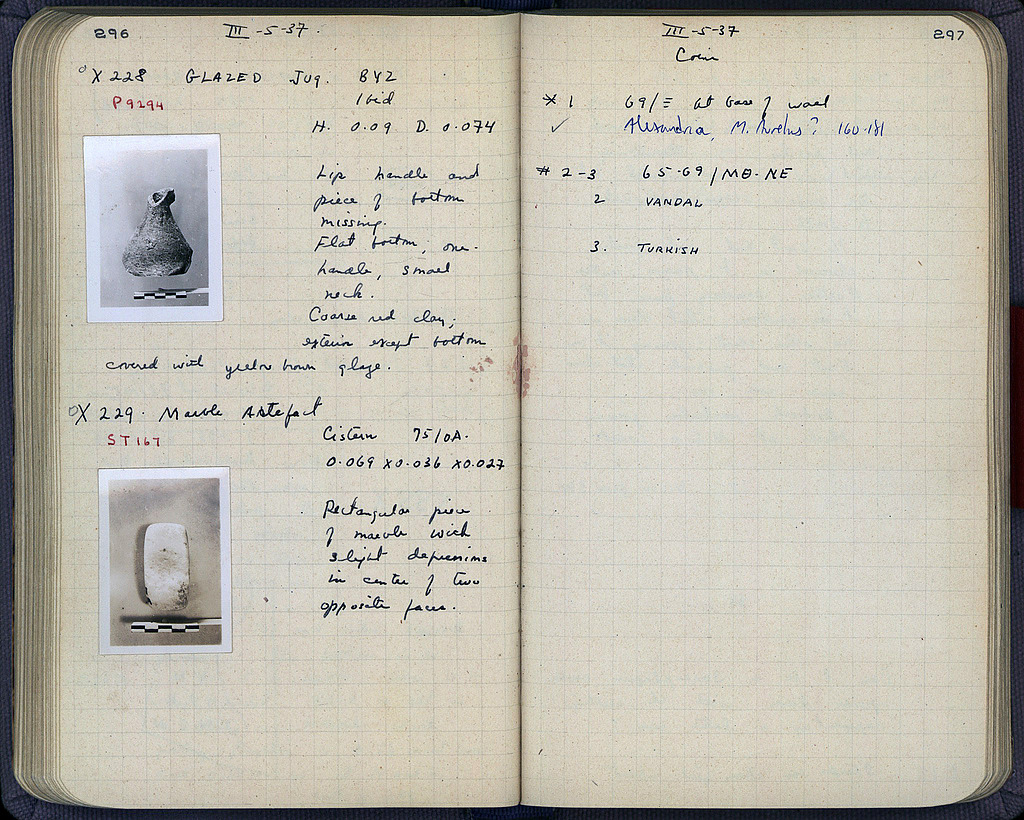 296
III -5-37.
X 228 GLAZED Jug. BYZ
P 9294
Ibid
H. 0.09 D. 0.074
Lip handle and
piece of bottom
missing.
Flat bottom, one-
handle, small
neck.
Coarse red clay;
exterior except bottom
covered with yellow brown glaze.
X 229. Marble Artefact
ST 167
Cistern 75/ΟΑ.
0.069 X 0.036 X 0.027
Rectangular piece
of marble with
slight depressions
in centre of two
opposite faces.
297
III -5-37
Coins
* 1 69/Ξ at base of wall
✓ Alexandria, M. Aurelius? 160-181
# 2-3 65-69/ΜΘ-ΝΕ
2 VANDAL
3. TURKISH